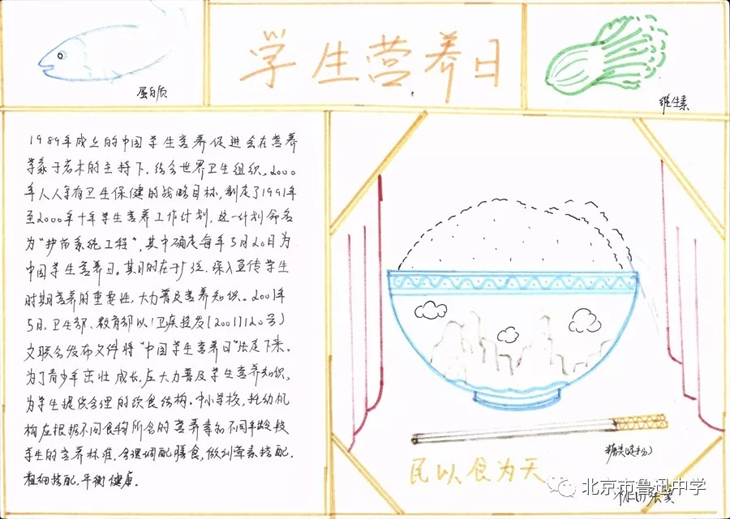 蛋白质
学生营养日
维生素
1989年成立的中国学生营养促进会在营养
学家于若木的主持下,结合世界卫生组织,2000
年人人享有卫生保健的战略目标,制定了1991年
至2000年十年学生营养工作计划,这一计划命名
为"护苗系统工程",其中确定每年5月20日为
中国学生营养日。其目的在于广泛、深入宣传学生
时期营养的重要性,大力普及营养知识。2001年
5月,卫生部、教育部以(卫疾控发(2001)120号)
文联合发布文件将"中国学生营养日"法定下来。
为了青少年茁壮成长,应大力普及学生营养知识,
为学生提供合理的饮食结构。中小学校,托幼机
构应根据不同食物所含的营养素和不同年龄段
学生的营养标准,合理调配膳食,做到荤素搭配,
粗细搭配,平衡健康。
糖类(淀粉)
民以食为天
北京市鲁迅中学